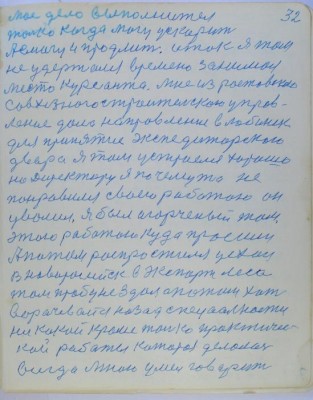 32
мое дело выполнится
только когда могу ускорит
а могу и продлит. итак я там
не удержался времено занимал
место курсанта. мне из ростовского
совхозного строительского управ-
ление дали направление в Лабинск
для принятие экспедиторского
двара я там устроился хорошо
но директору я почемуто не
понравился своею работою он
уволил. я был огорченый там
этого работою куда просили
а потом распростился уехал
в новоросийск в Экспорт леса
там пробу не здал а потом хот
ворачевайся назад специалности
ни какий кроме только практиче-
ской работа которой делолах
всегда мною умел говорит